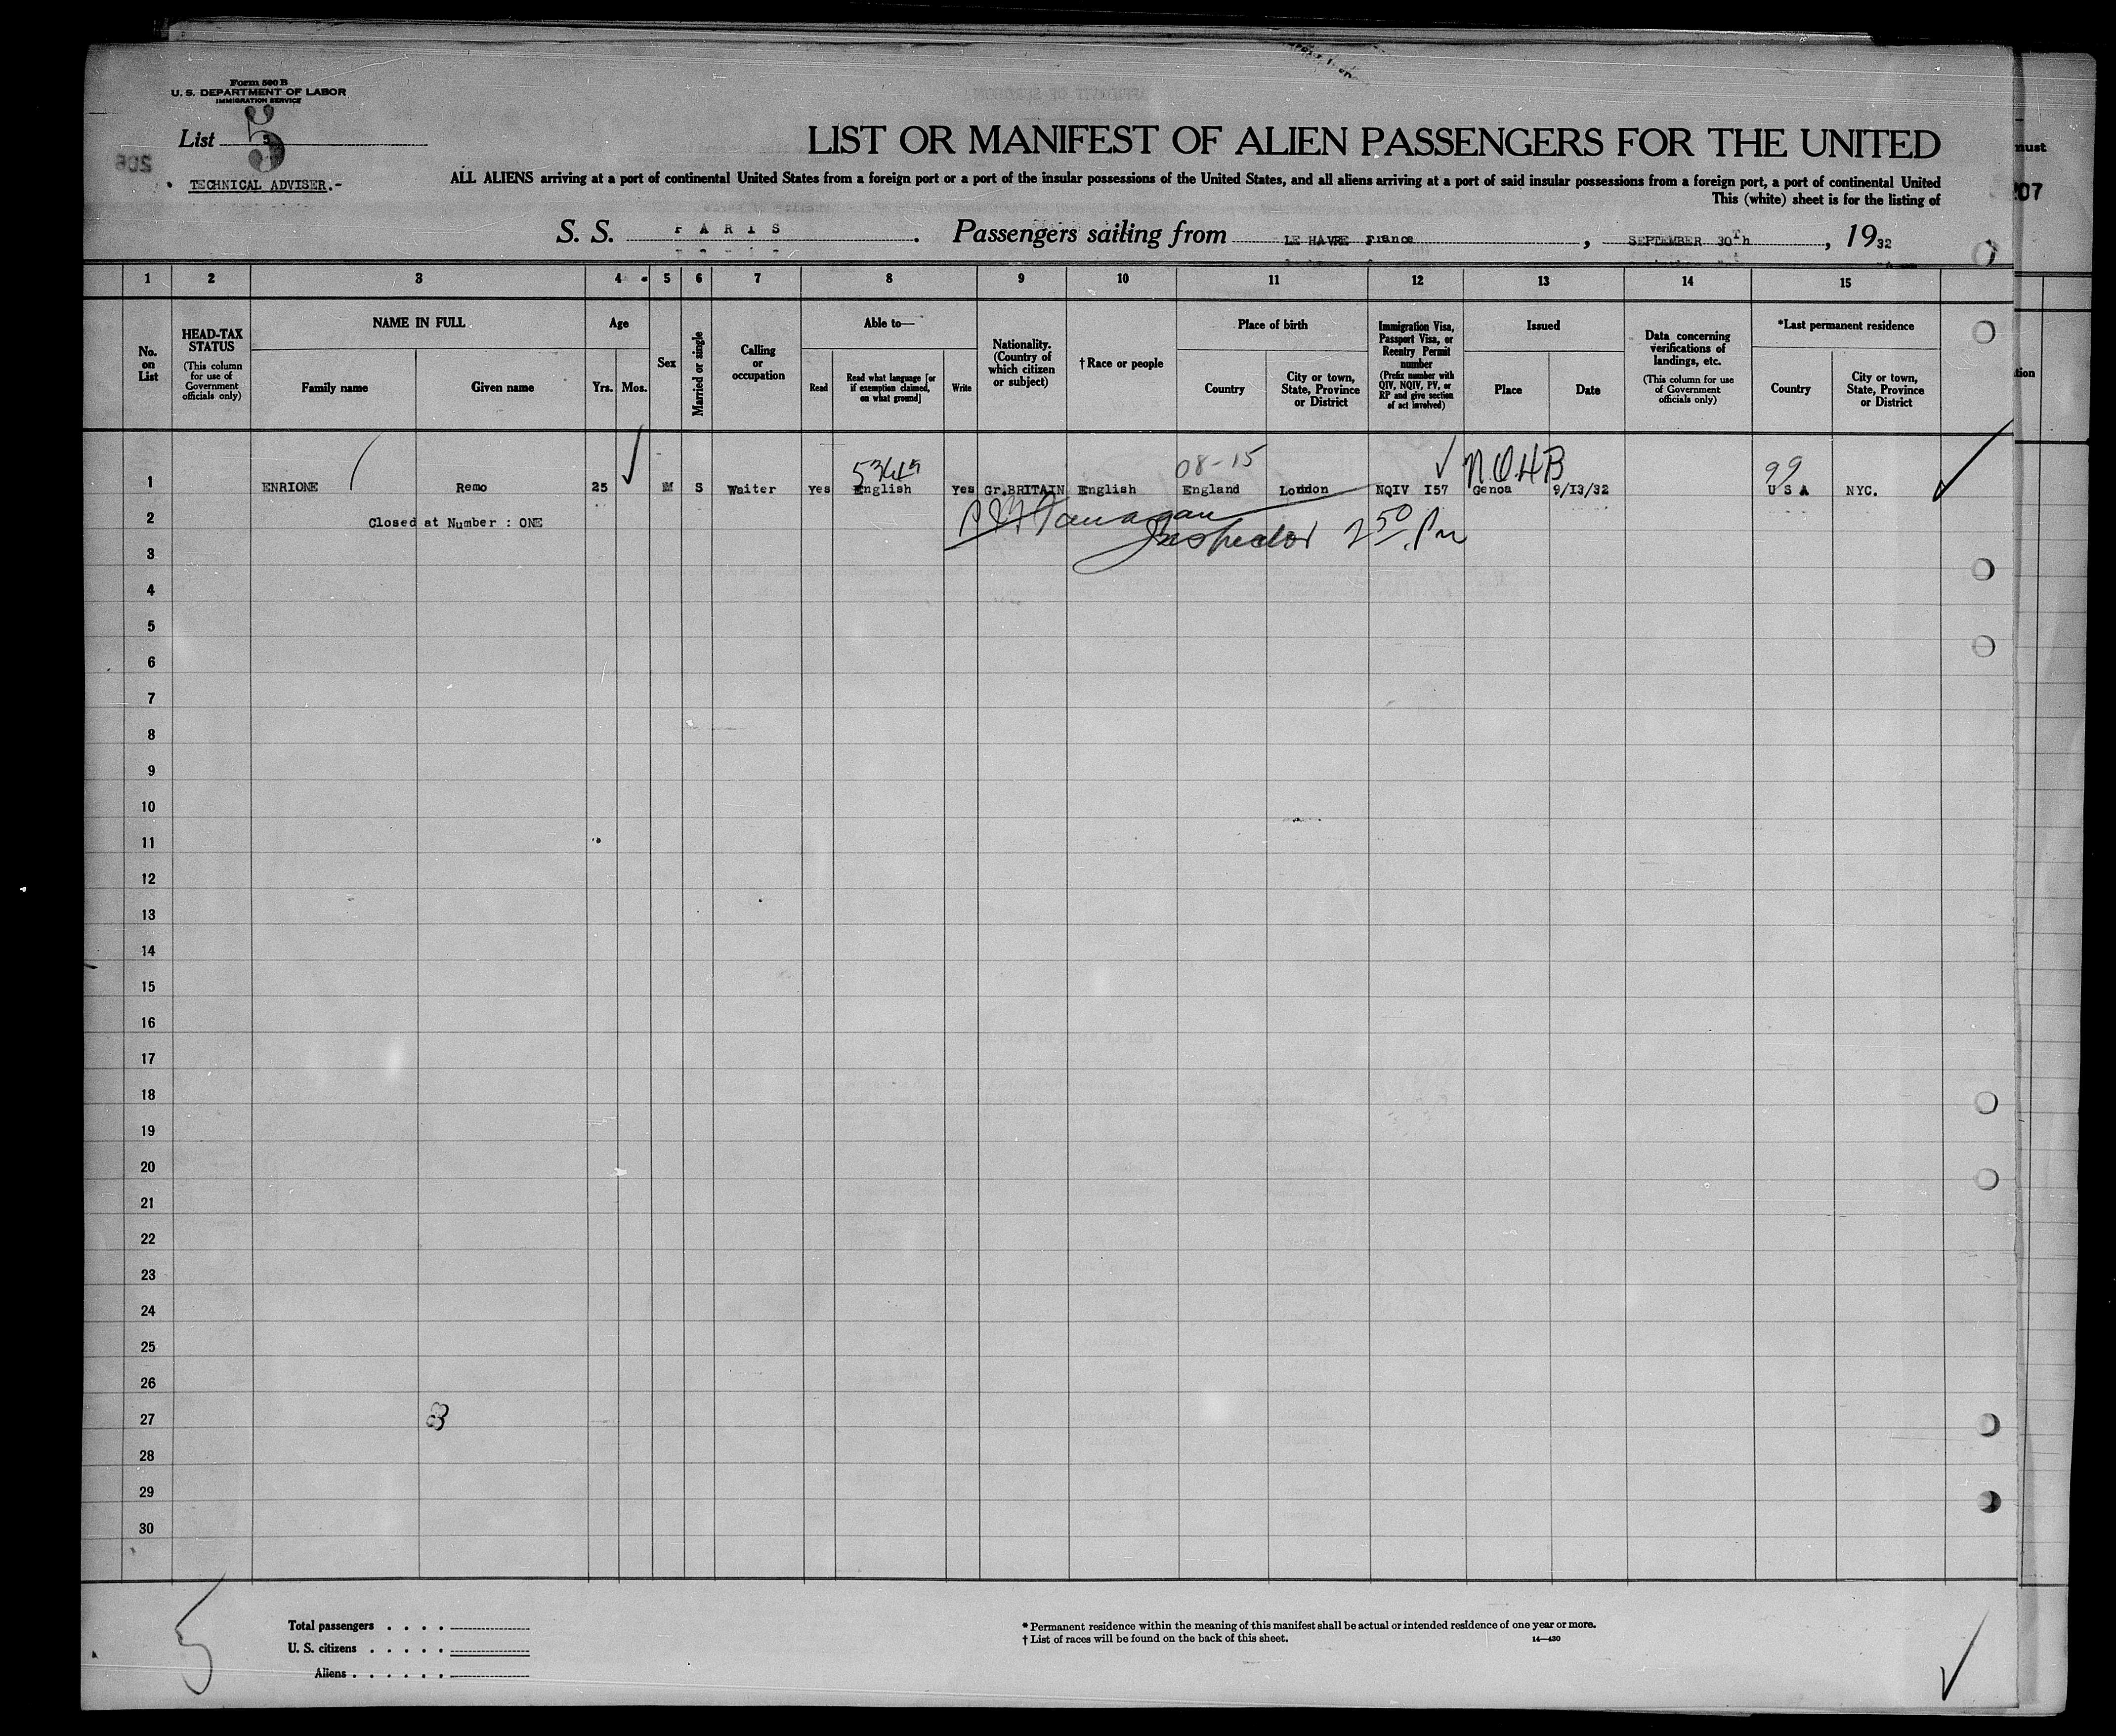 Form 500 B
U. S. DEPARTMENT OF LABOR
IMMIGRATION SERVICE
List 5
206
TECHNICAL ADVISER.-
LIST OR MANIFEST OF ALIEN PASSENGERS FOR THE UNITED
ALL ALIENS arriving at a port of continental United States from a foreign port or a port of the insular possessions of the United States, and all aliens arriving at a port of said insular possessions from a foreign port, a port of continental United
This (white) sheet is for the listing of
must
207
S. S. PARIS. Passengers sailing from LE HAVRE France, SEPTEMBER 30Th, 1932
1 2 3 4 5 6 7 8 9 10 11 12 13 14 15
No. on List
HEAD-TAX STATUS (This column for use of Government officials only)
NAME IN FULL
Family name
Given name
Age
Yrs. Mos.
Sex
Married or single
Calling or occupation
Able to—
Read
Read what language [or if exemption claimed, on what ground]
Write
Nationality. (Country of which citizen or subject)
†Race or people
Place of birth
Country
City or town, State, Province or District
Immigration Visa, Passport Visa, or Reentry Permit number (Prefix number with QIV, NQIV, PV, or RP and give section of act involved)
Issued
Place
Date
Data concerning verifications of landings, etc. (This column for use of Government officials only)
*Last permanent residence
Country
City or town, State, Province or District
tion
08-15
99
1 ENRIONE Remo 25 M S Waiter Yes English Yes Gr.BRITAIN English England London NQIV I57 Genoa 9/13/32 U S A NYC.
2 Closed at Number : ONE
Inspector 2 50 Pm
3
4
5
6
7
8
9
10
11
12
13
14
15
16
17
18
19
20
21
22
23
24
25
26
27
28
29
30
5
Total passengers . . . .
U. S. citizens . . . . .
Aliens . . . . . .
* Permanent residence within the meaning of this manifest shall be actual or intended residence of one year or more.
† List of races will be found on the back of this sheet.
14—430